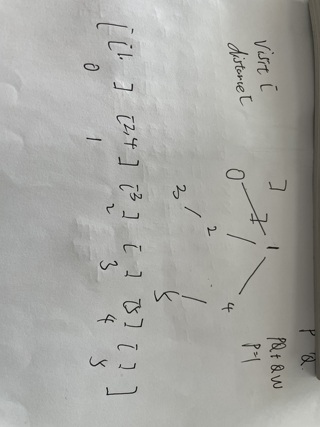 visit [
distance [
]
0
1
2
3
4
5
P Q
PQ + QW
P=1
[ [1, ] [2,4] [3] [ ] [5] [ ] ]
0 1 2 3 4 5